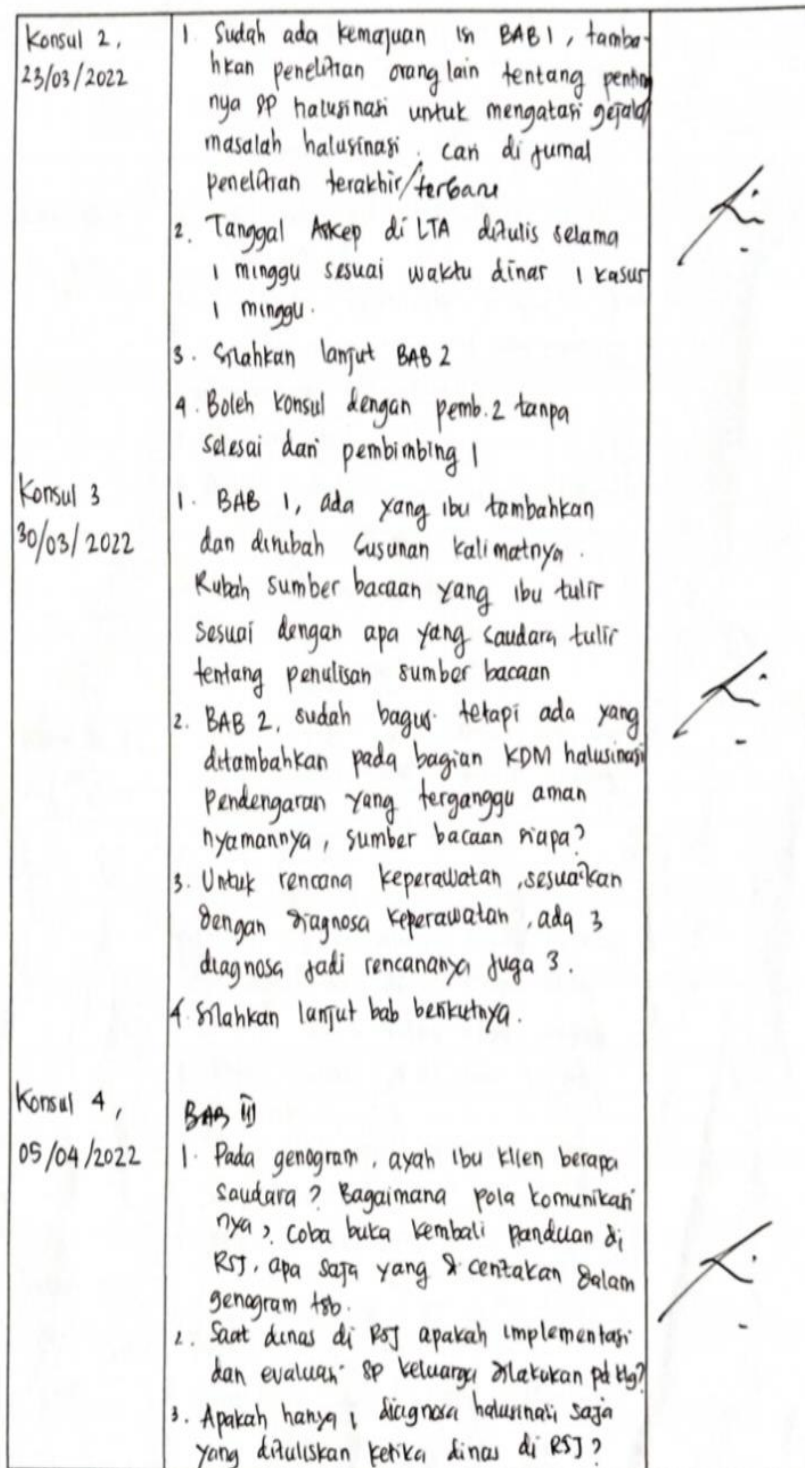 Konsul 2,
23/03/2022
1. Sudah ada kemajuan isi BAB 1, tamba-
hkan penelitian orang lain tentang penting
nya SP halusinasi untuk mengatasi gejala
masalah halusinasi. cari di jurnal
penelitian terakhir/terbaru
2. Tanggal Askep di LTA ditulis selama
1 minggu sesuai waktu dinas 1 kasus
1 minggu.
3. Silahkan lanjut BAB 2
4. Boleh konsul dengan pemb.2 tanpa
selesai dari pembimbing 1
Konsul 3
30/03/2022
1. BAB 1, ada yang ibu tambahkan
dan dirubah susunan kalimatnya.
Rubah sumber bacaan yang ibu tulis
sesuai dengan apa yang saudara tulis
tentang penulisan sumber bacaan
2. BAB 2, sudah bagus tetapi ada yang
ditambahkan pada bagian KDM halusinasi
Pendengaran yang terganggu aman
nyamannya, sumber bacaan siapa?
3. Untuk rencana keperawatan, sesuaikan
dengan diagnosa keperawatan, ada 3
diagnosa jadi rencananya juga 3.
4. Silahkan lanjut bab berikutnya.
Konsul 4,
05/04/2022
BAB III
1. Pada genogram, ayah ibu klien berapa
saudara? Bagaimana pola komunikasi
nya?, coba buka kembali panduan di
RSJ, apa saja yang di ceritakan dalam
genogram tsb.
2. Saat dinas di RSJ apakah implementasi
dan evaluasi SP keluarga dilakukan pd klg?
3. Apakah hanya 1 diagnosa halusinasi saja
yang dituliskan ketika dinas di RSJ?